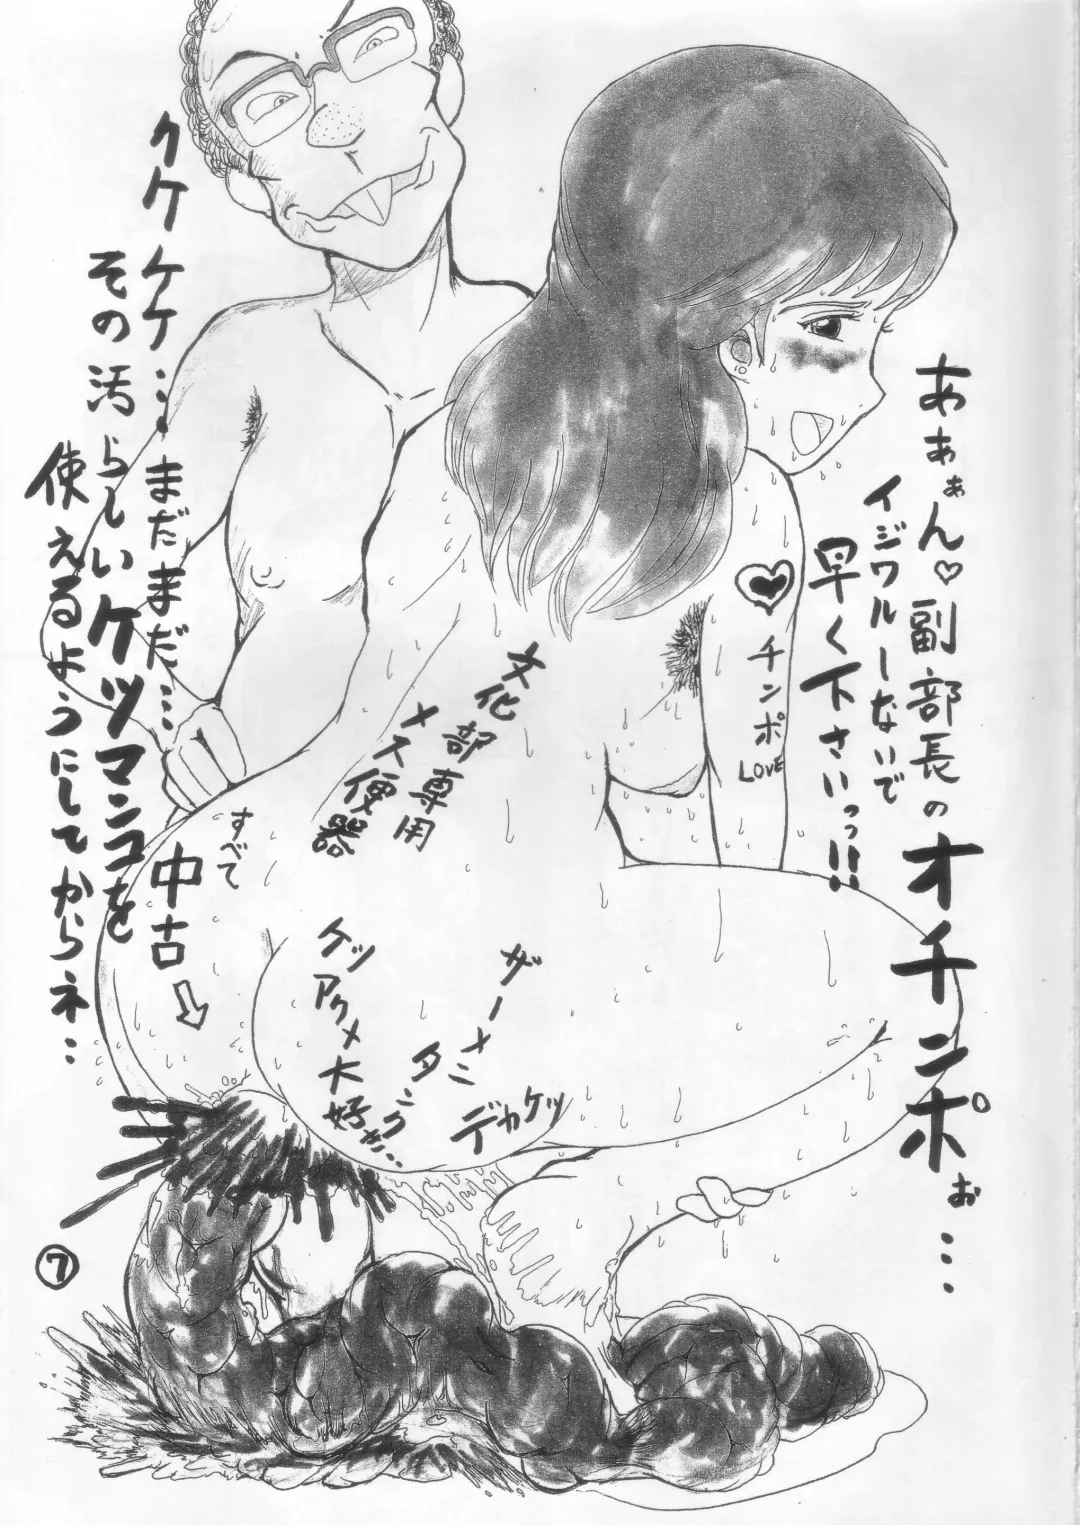 あああぁん♡副部長のオチンポぉ…
イジワルしないで
早く下さいっっ!!
クケケケ…まだまだ…
その汚らしいケツマンコを
使えるようにしてからネ…
チンポ
LOVE
文化部専用
メス便器
すべて
中古⇩
ケツ
アクメ大好き…
ザーメン
タンク
デカケツ
⑦